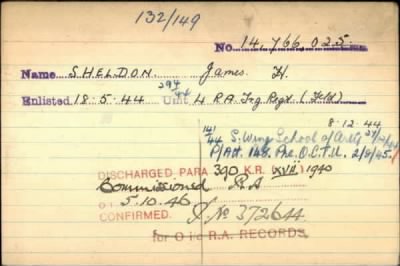 132/149
No. 14,766,025.
Name SHELDON. James H.
294/44
Enlisted 18.5.44 Unit 4 RA Trg Regt (Fld)
8.12.44
14/44 S. Wing School of Arty
P/Att. 148. Pre. O.C.T.U. 2/8/45.
DISCHARGED, PARA 390 K.R. (XVII) 1940
Commissioned RA
5.10.46
CONFIRMED. P/No 372644
for O i/c R.A. RECORDS.